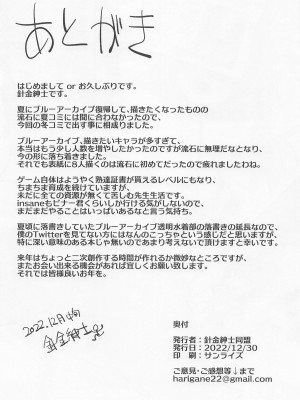 あとがき
はじめまして or お久しぶりです。
針金紳士です。
夏にブルーアーカイブ復帰して、描きたくなったものの
流石に夏コミには間に合わなかったので、
今回の冬コミで出す事に相成りました。
ブルーアーカイブ、描きたいキャラが多すぎて、
本当はもう少し人数を増やしたかったのですが流石に無理だなとなり、
今の形に落ち着きました。
それでも表紙に8人描くのは流石に初めてだったので疲れましたわね。
ゲーム自体はようやく熟達証書が貰えるレベルにもなり、
ちまちま育成を続けていますが、
未だに全ての資源が無くて苦しむ先生生活です。
insaneもビナー君くらいしか行ける気がしないので、
まだまだやることはいっぱいあるなと言う気持ち。
夏頃に落書きしていたブルーアーカイブ透明水着部の落書きの延長なので、
僕のTwitterを見てない方にはなんのこっちゃという感じだと思いますが、
特に深い意味のある本じゃ無いのであまり考えないで頂けますと幸いです。
来年はちょっと二次創作する時間が作れるか微妙なところですが、
またお会い出来る機会があれば宜しくお願い致します。
それでは皆様良いお年を。
2022.12月
針金紳士
奥付
発行者：針金紳士同盟
発行日：2022/12/30
印 刷：サンライズ
ご意見・ご感想等↓まで
harigane22@gmail.com